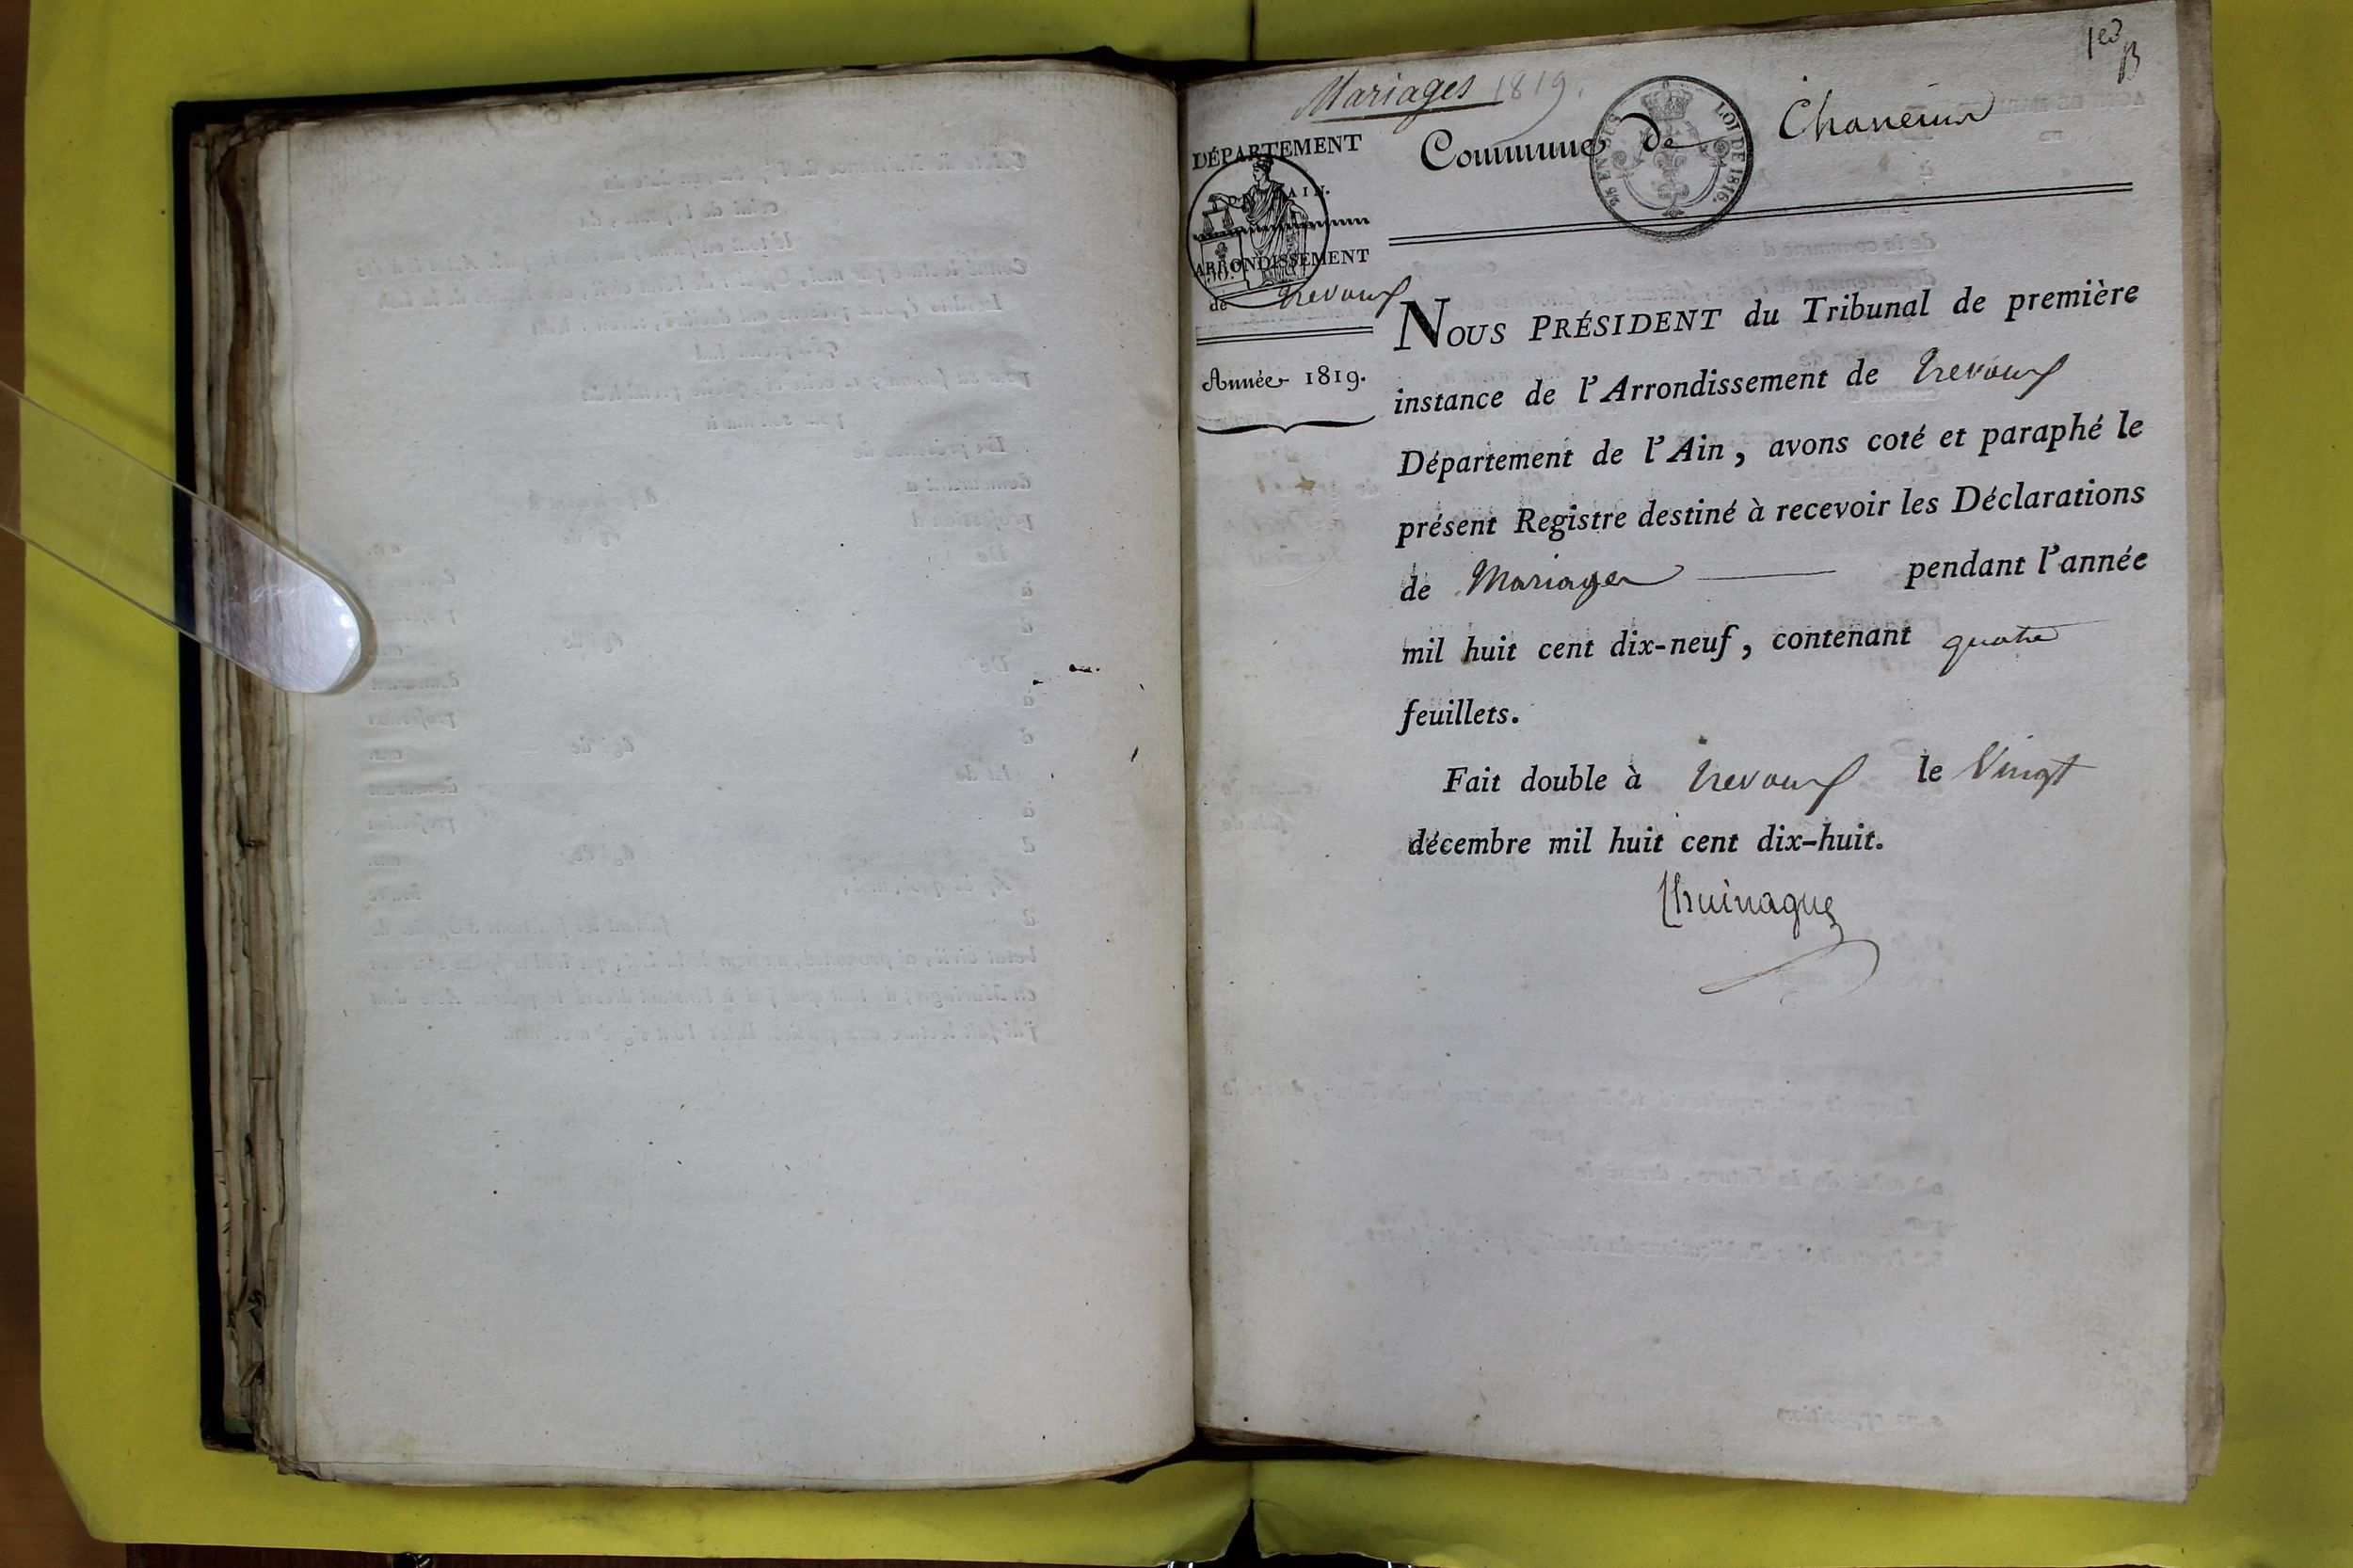 1er
Mariages 1819.
DÉPARTEMENT
AIN.
ARRONDISSEMENT
de Trevoux
Année 1819.
Commune de Chaneins
EN SUS
LOI DE 1816.
NOUS PRÉSIDENT du Tribunal de première
instance de l'Arrondissement de Trevoux
Département de l'Ain, avons coté et paraphé le
présent Registre destiné à recevoir les Déclarations
de Mariages — pendant l'année
mil huit cent dix-neuf, contenant quatre
feuillets.
Fait double à Trevoux le Vingt
décembre mil huit cent dix-huit.